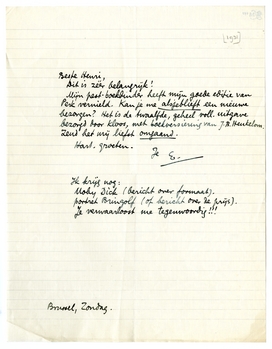 [1931]
Beste Henri,
Dit is zéér belangrijk!
Mijn pest-boekbinder heeft mijn goede editie van
Perk vernield. Kan je me alsjeblieft een nieuwe
bezorgen? Het is de twaalfde, geheel voll. uitgave
bezorgd door Kloos, met boekversiering van J.B. Heukelom.
Zend het mij liefst omgaand.
Hart. groeten.
Je E.
Ik krijg nog:
Moby Dick (bericht over formaat).
portrét Bringolf (of bericht over de prijs).
Je verwaarloost me tegenwoordig!!!
Brussel, Zondag.